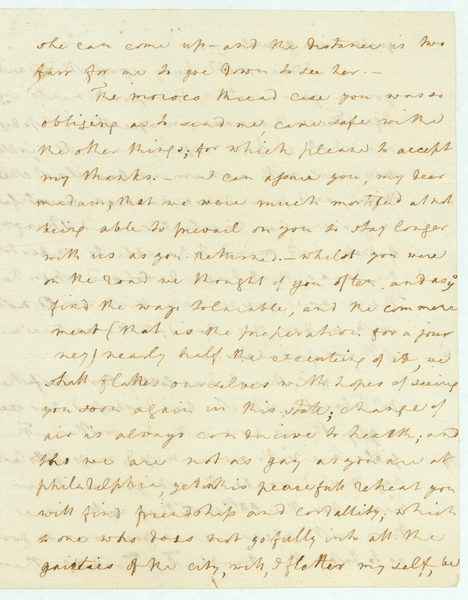 she can come up - and the distance is two
farr for me to goe down to see her. -
The moroco thread case you was so
obliging as to send me, came safe with
the other things; for which please to accept
my thanks. - we can assure you, my dear
madam, that we were much mortified at not
being able to prevail on you to stay longer
with us as you returned. - whilst you were
on the road we thought of you often. and as you
find the ways tolarable, and the commence
ment (that is the preperation for a jour
ney) nearly half the executing of it, we
shall flatter ourselves with hopes of seeing
you soon again in this state; change of
air is always conducive to health; and
tho we are not as gay as you are at
philadelphia, yet in this peacefull retreat you
will find friendship and cordallity; which
to one who does not go fully into all the
gaieties of the city, will, I flatter my self, be